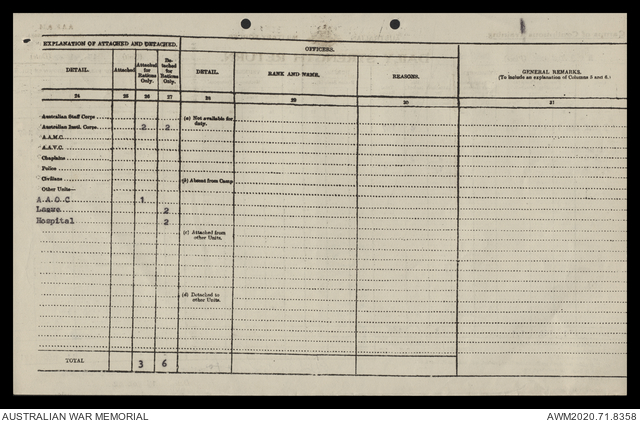 EXPLANATION OF ATTACHED AND DETACHED.
OFFICERS.
GENERAL REMARKS.
(To include an explanation of Columns 5 and 6.)
DETAIL. Attached Attached for Rations Only. De-tached for Rations Only. DETAIL. RANK AND NAME. REASONS.
24 25 26 27 28 29 30 31
Australian Staff Corps
(a) Not available for duty.
Australian Instl. Corps. 2 2
A.A.M.C.
A.A.V.C.
Chaplains
Police
Civilians
(b) Absent from Camp
Other Units—
A.A.O.C. 1
Leave 2
Hospital 2
(c) Attached from other Units.
(d) Detached to other Units.
TOTAL 3 6
AUSTRALIAN WAR MEMORIAL
AWM2020.71.8358